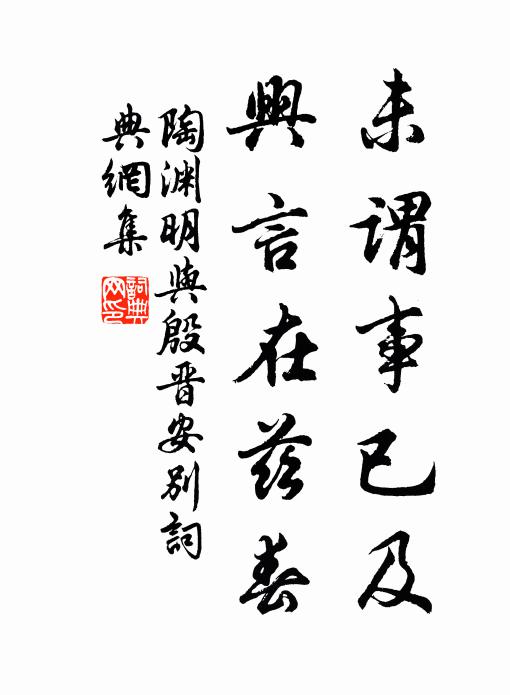 未謂事已及
興言在茲春
陶淵明與殷晋安別詞
典網集
詞典
网印